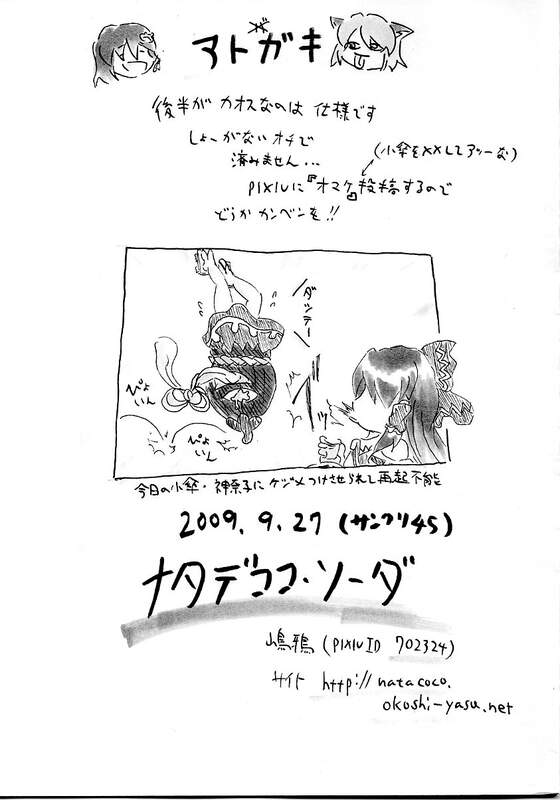 アトガキ
後半が カオスなのは 仕様です
しょーがないオチで
済みません...
(小傘を××してアッーな)
PIXIVに『オマケ』投稿するので
どうか カンベンを!!
ダッテー
ぴょいん
ぴょいん
今日の小傘・神奈子に ケジメつけさせられて 再起不能
2009.9.27 (サンクリ45)
ナタデココ・ソーダ
嶋鴉 (PIXIV ID 702324)
サイト http://natacoco.
okoshi-yasu.net